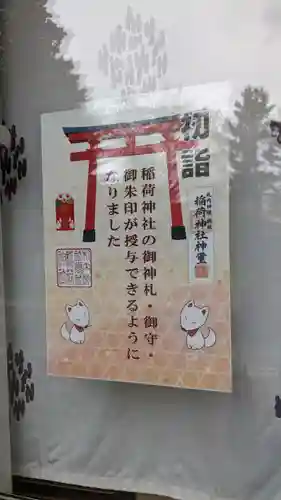 初詣
稲荷神社の御神札・御守・
御朱印が授与できるように
なりました
稲荷神社神璽